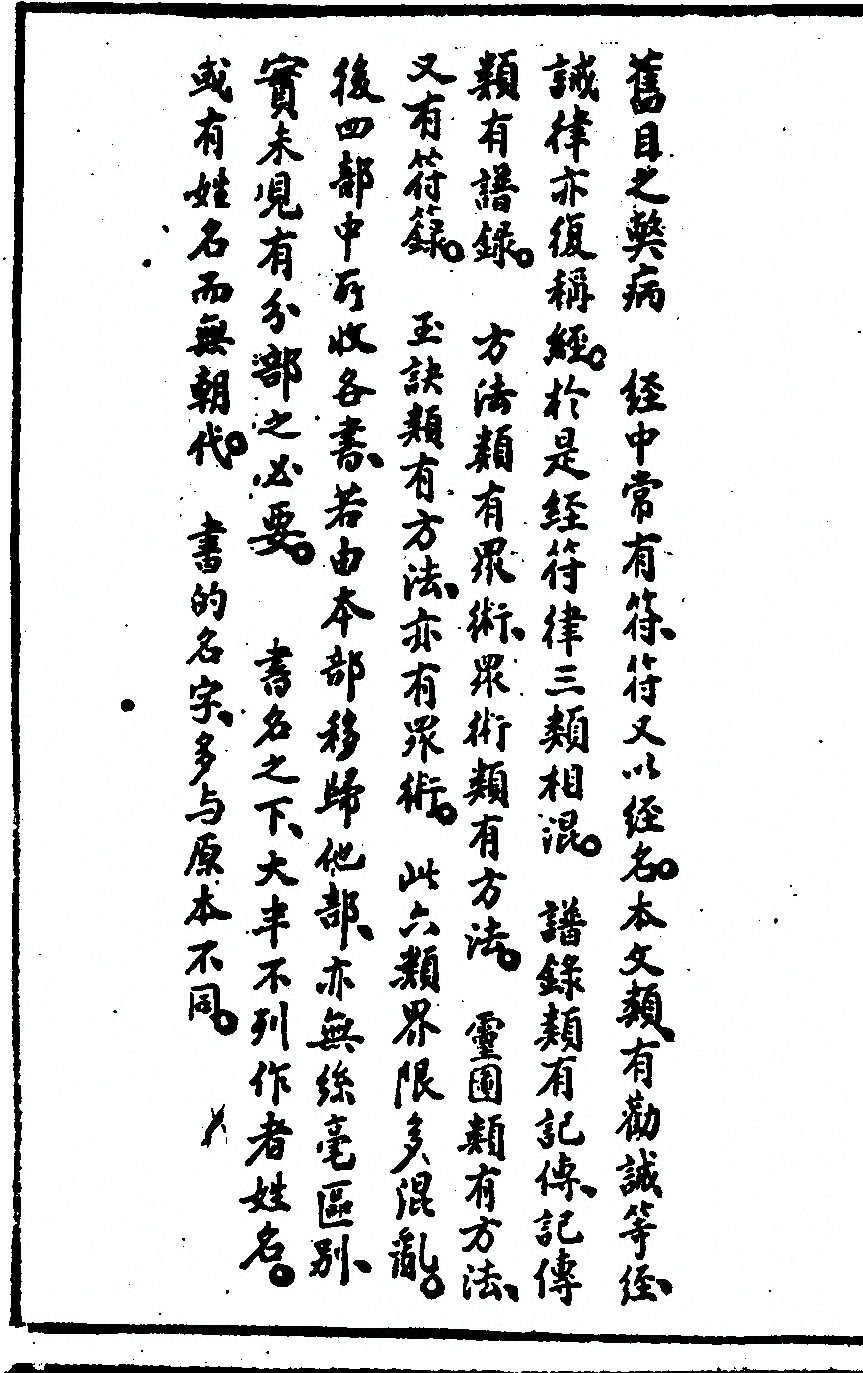 舊目之弊病　経中常有符、符又以経名。本文類、有勸誡等経、
誡律亦復稱經。於是経符律三類相混。　譜錄類有記傳、記傳
類有譜錄。　方法類有眾術、眾術類有方法。　靈圖類有方法、
又有符籙。　玉訣類有方法、亦有眾術。　此六類界限多混亂。
後四部中所收各書、若由本部移歸他部、亦無絲毫區別、
實未見有分部之必要。　書名之下、大半不列作者姓名。
或有姓名而無朝代。　書的名字、多与原本不同。